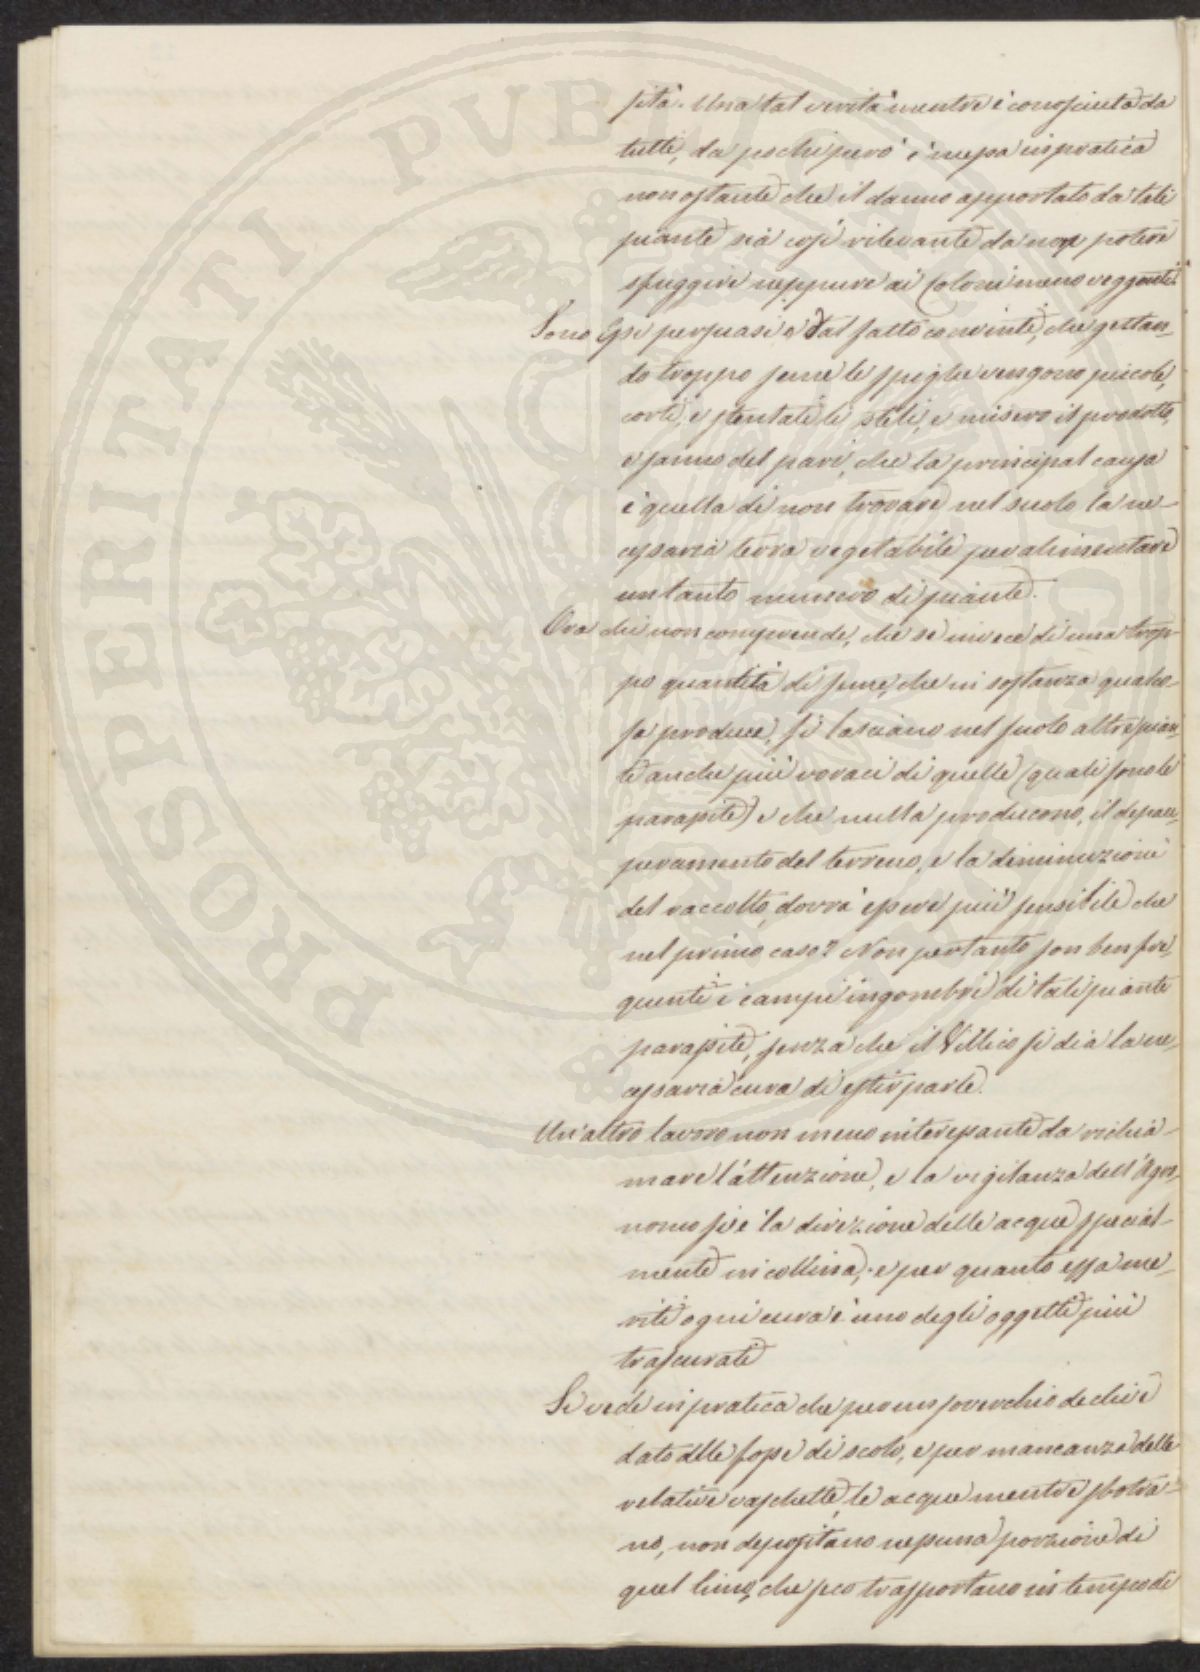 PROSPERITATI PVBLICAE
sità. Una tal verità mentre è conosciuta da
tutti, da pochi però è messa in pratica
non ostante che il danno apportato da tali
piante sia così rilevante da non potere
sfuggire neppure ai Coloni meno veggenti.
Sono essi persuasi e dal fatto convinti, che gettan-
do troppo seme le spighe vengono piccole,
corti, e stentati li steli, e misero il prodotto,
e sanno del pari, che la principal causa
è quella di non trovare nel suolo la ne-
cessaria terra vegetabile per alimentare
un tanto numero di piante.
Ora chi non comprende, che se invece di una trop-
po quantità di seme, che in sostanza qualco-
sa produce, si lasciano nel suolo altre pian-
te anche più voraci di quelle (quali sono le
parasite) e che nulla producono, il depau-
peramento del terreno, e la diminuzione
del raccolto, dovrà essere più sensibile che
nel primo caso? Non pertanto son ben fre-
quenti i campi ingombri di tali piante
parasite, senza che il Villico si dia la ne-
cessaria cura di estirparle.
Un'altro lavoro non meno interessante da richia-
mare l'attenzione, e la vigilanza dell'Agro-
nomo si è la direzione delle acque special-
mente in collina, e per quanto essa me-
riti ogni cura è uno degli oggetti più
trascurati
Si vede in pratica che per un soverchio declive
dato alle fosse di scolo, e per mancanza delle
relative vaschette, le acque mentre sbotra-
no, non depositano nessuna porzione di
quel limo, che seco trasportano in tempo di